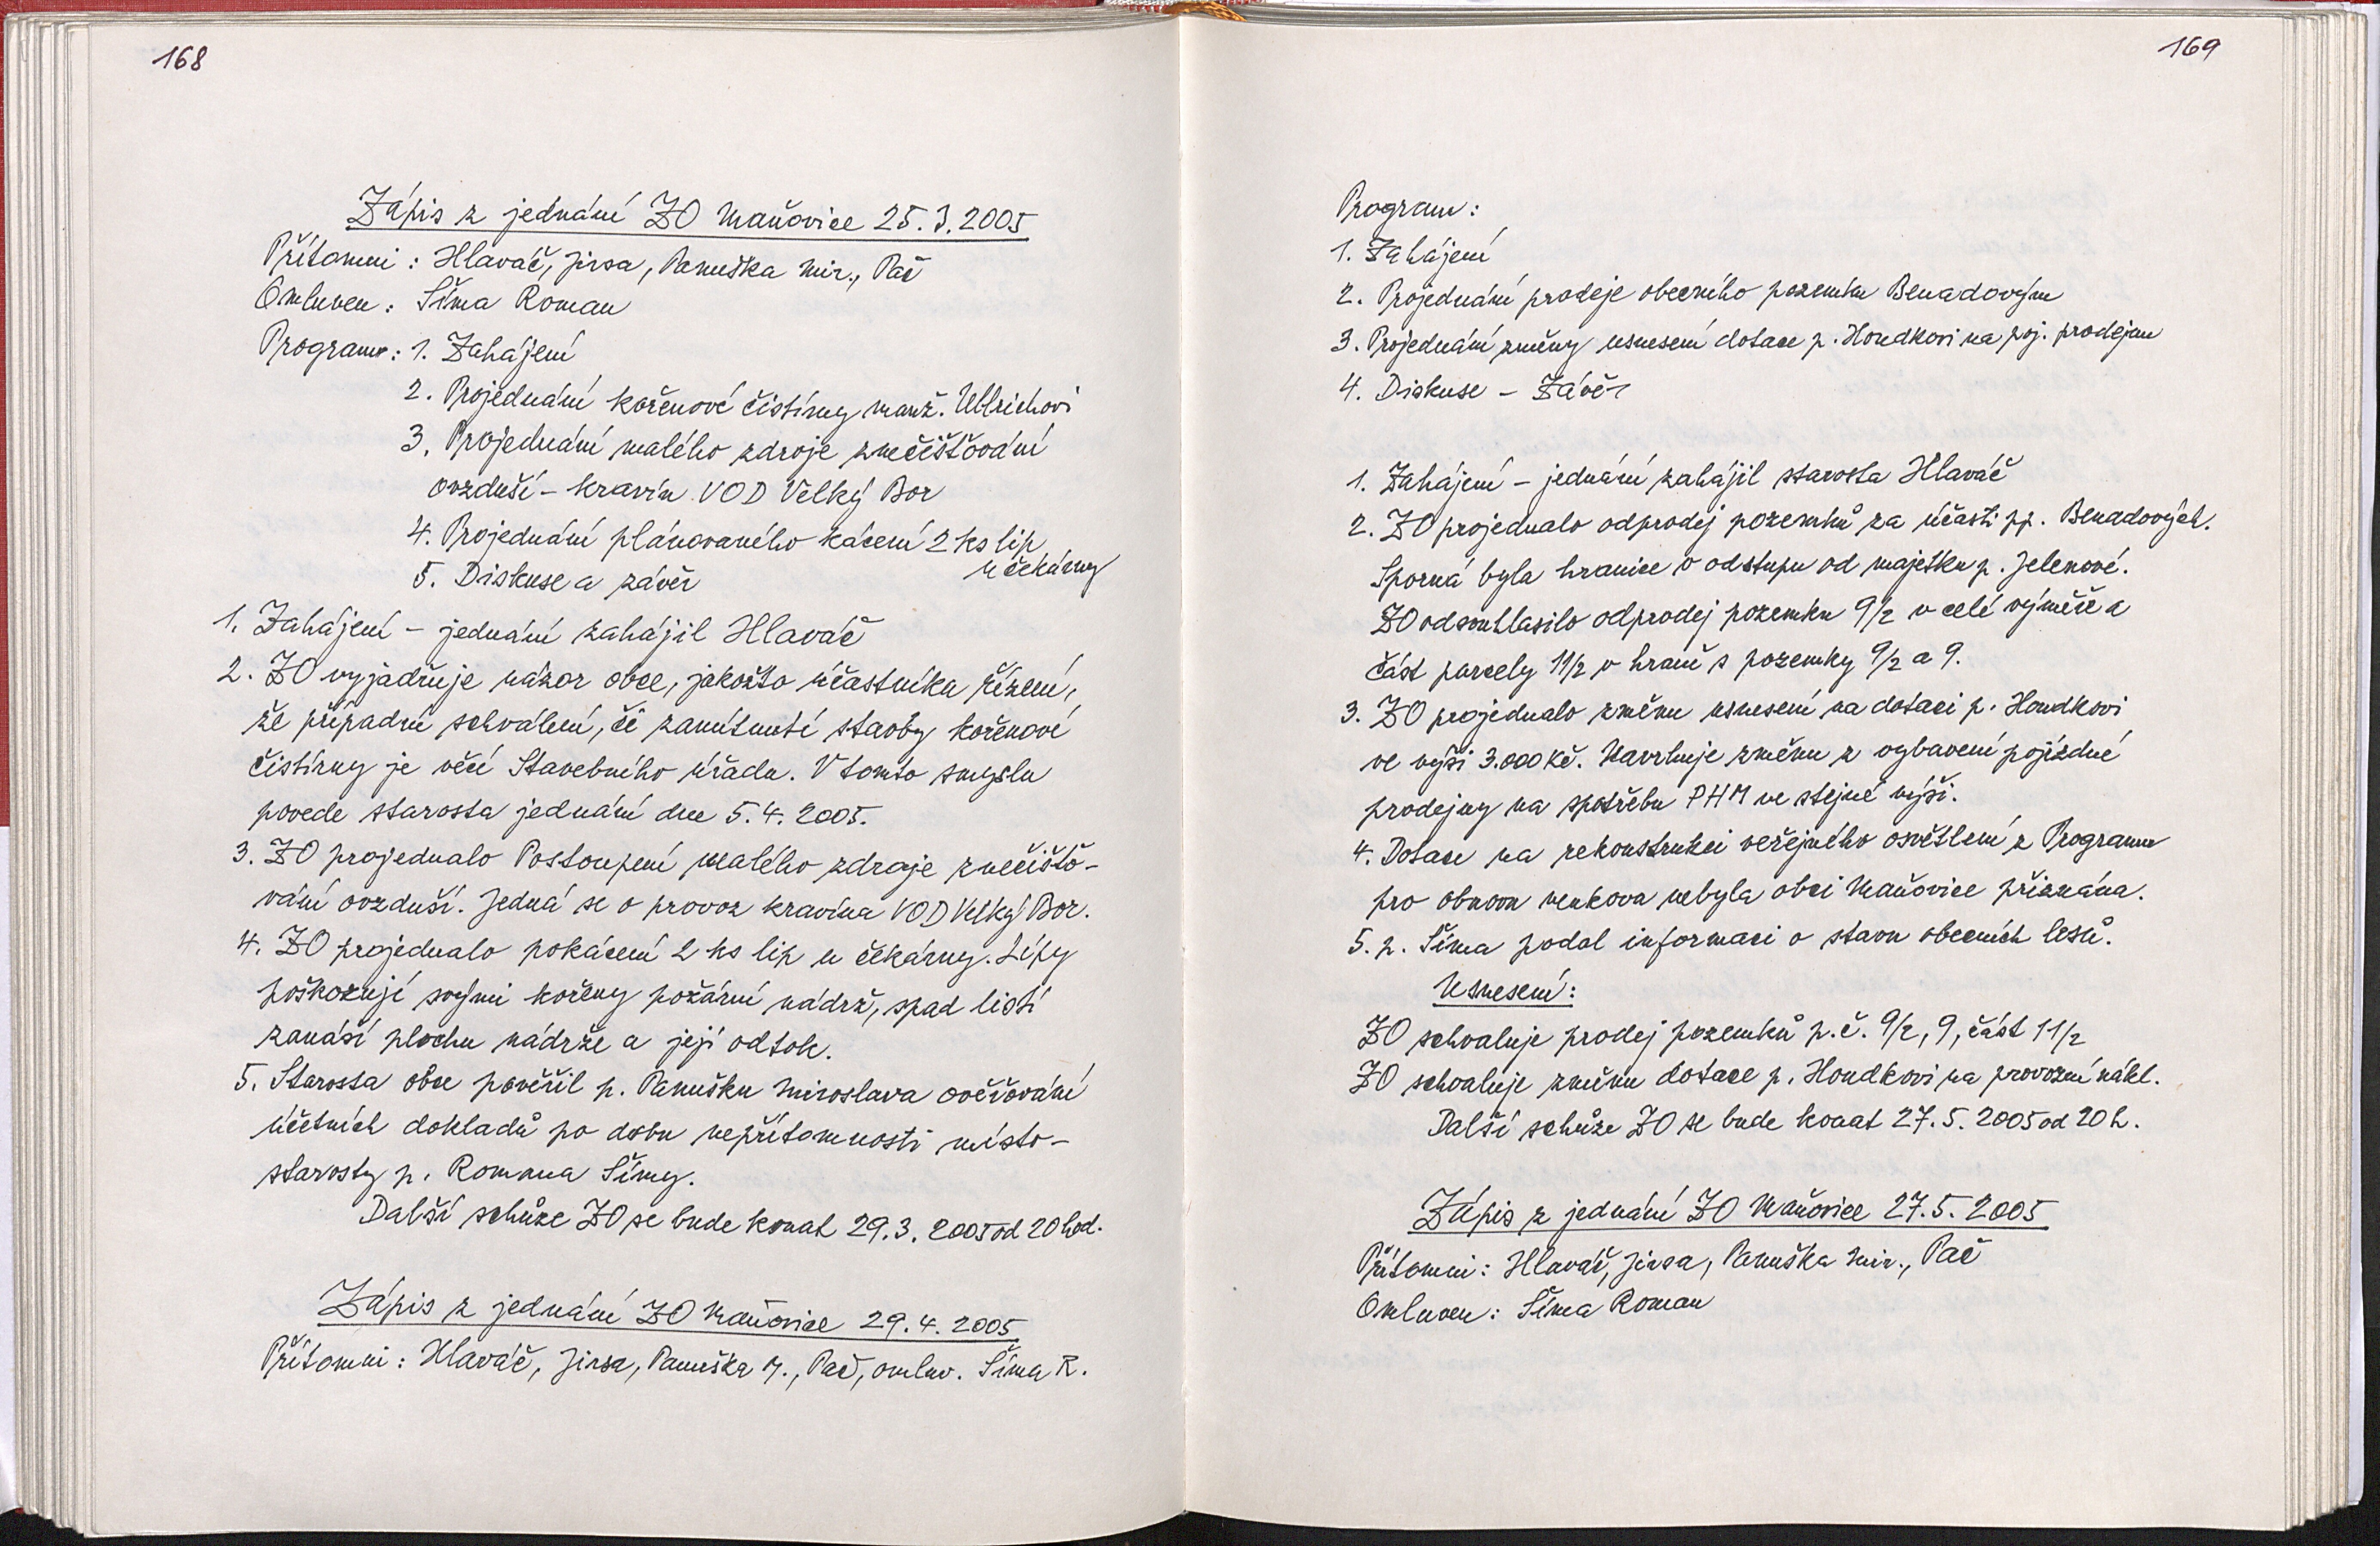 168
Zápis z jednání ZO Maňovice 25.3.2005
Přítomni: Hlaváč, Jirsa, Panuška Mir., Pač
Omluven: Šíma Roman
Program: 1. Zahájení
2. Projednání kořenové čistírny manž. Ullrichovi
3. Projednání malého zdroje znečišťování
ovzduší - kravín VOD Velký Bor
4. Projednání plánovaného kácení 2 ks lip
u čekárny
5. Diskuse a závěr
1. Zahájení - jednání zahájil Hlaváč
2. ZO vyjadřuje názor obce, jakožto účastníka řízení,
že případné schválení, či zamítnutí stavby kořenové
čistírny je věcí Stavebního úřadu. V tomto smyslu
povede starosta jednání dne 5.4.2005.
3. ZO projednalo Postoupení malého zdroje znečišťo-
vání ovzduší. Jedná se o provoz kravína VOD Velký Bor.
4. ZO projednalo pokácení 2 ks lip u čekárny. Lípy
poškozují svými kořeny požární nádrž, spad listí
zanáší plochu nádrže a její odtok.
5. Starosta obce pověřil p. Panušku Miroslava ověřování
účetních dokladů po dobu nepřítomnosti místo-
starosty p. Romana Šímy.
Další schůze ZO se bude konat 29.3.2005 od 20 hod.
Zápis z jednání ZO Maňovice 29.4.2005
Přítomni: Hlaváč, Jirsa, Panuška M., Pač, omluv. Šíma R.
169
Program:
1. Zahájení
2. Projednání prodeje obecního pozemku Benadovým
3. Projednání změny usnesení dotace p. Houdkovi na poj. prodejnu
4. Diskuse - Závěr
1. Zahájení - jednání zahájil starosta Hlaváč
2. ZO projednalo odprodej pozemků za účasti pp. Benadových.
Sporná byla hranice v odstupu od majetku p. Jelenové.
ZO odsouhlasilo odprodej pozemku 9/2 v celé výměře a
část parcely 11/2 v hraně s pozemky 9/2 a 9.
3. ZO projednalo změnu usnesení na dotaci p. Houdkovi
ve výši 3.000 Kč. Navrhuje změnu z vybavení pojízdné
prodejny na spotřebu PHM ve stejné výši.
4. Dotace na rekonstrukci veřejného osvětlení z Programu
pro obnovu venkova nebyla obci Maňovice přiznána.
5. p. Šíma podal informaci o stavu obecních lesů.
Usnesení:
ZO schvaluje prodej pozemků p.č. 9/2, 9, část 11/2
ZO schvaluje změnu dotace p. Houdkovi na provozní nákl.
Další schůze ZO se bude konat 27.5.2005 od 20 h.
Zápis z jednání ZO Maňovice 27.5.2005
Přítomni: Hlaváč, Jirsa, Panuška Mir., Pač
Omluven: Šíma Roman